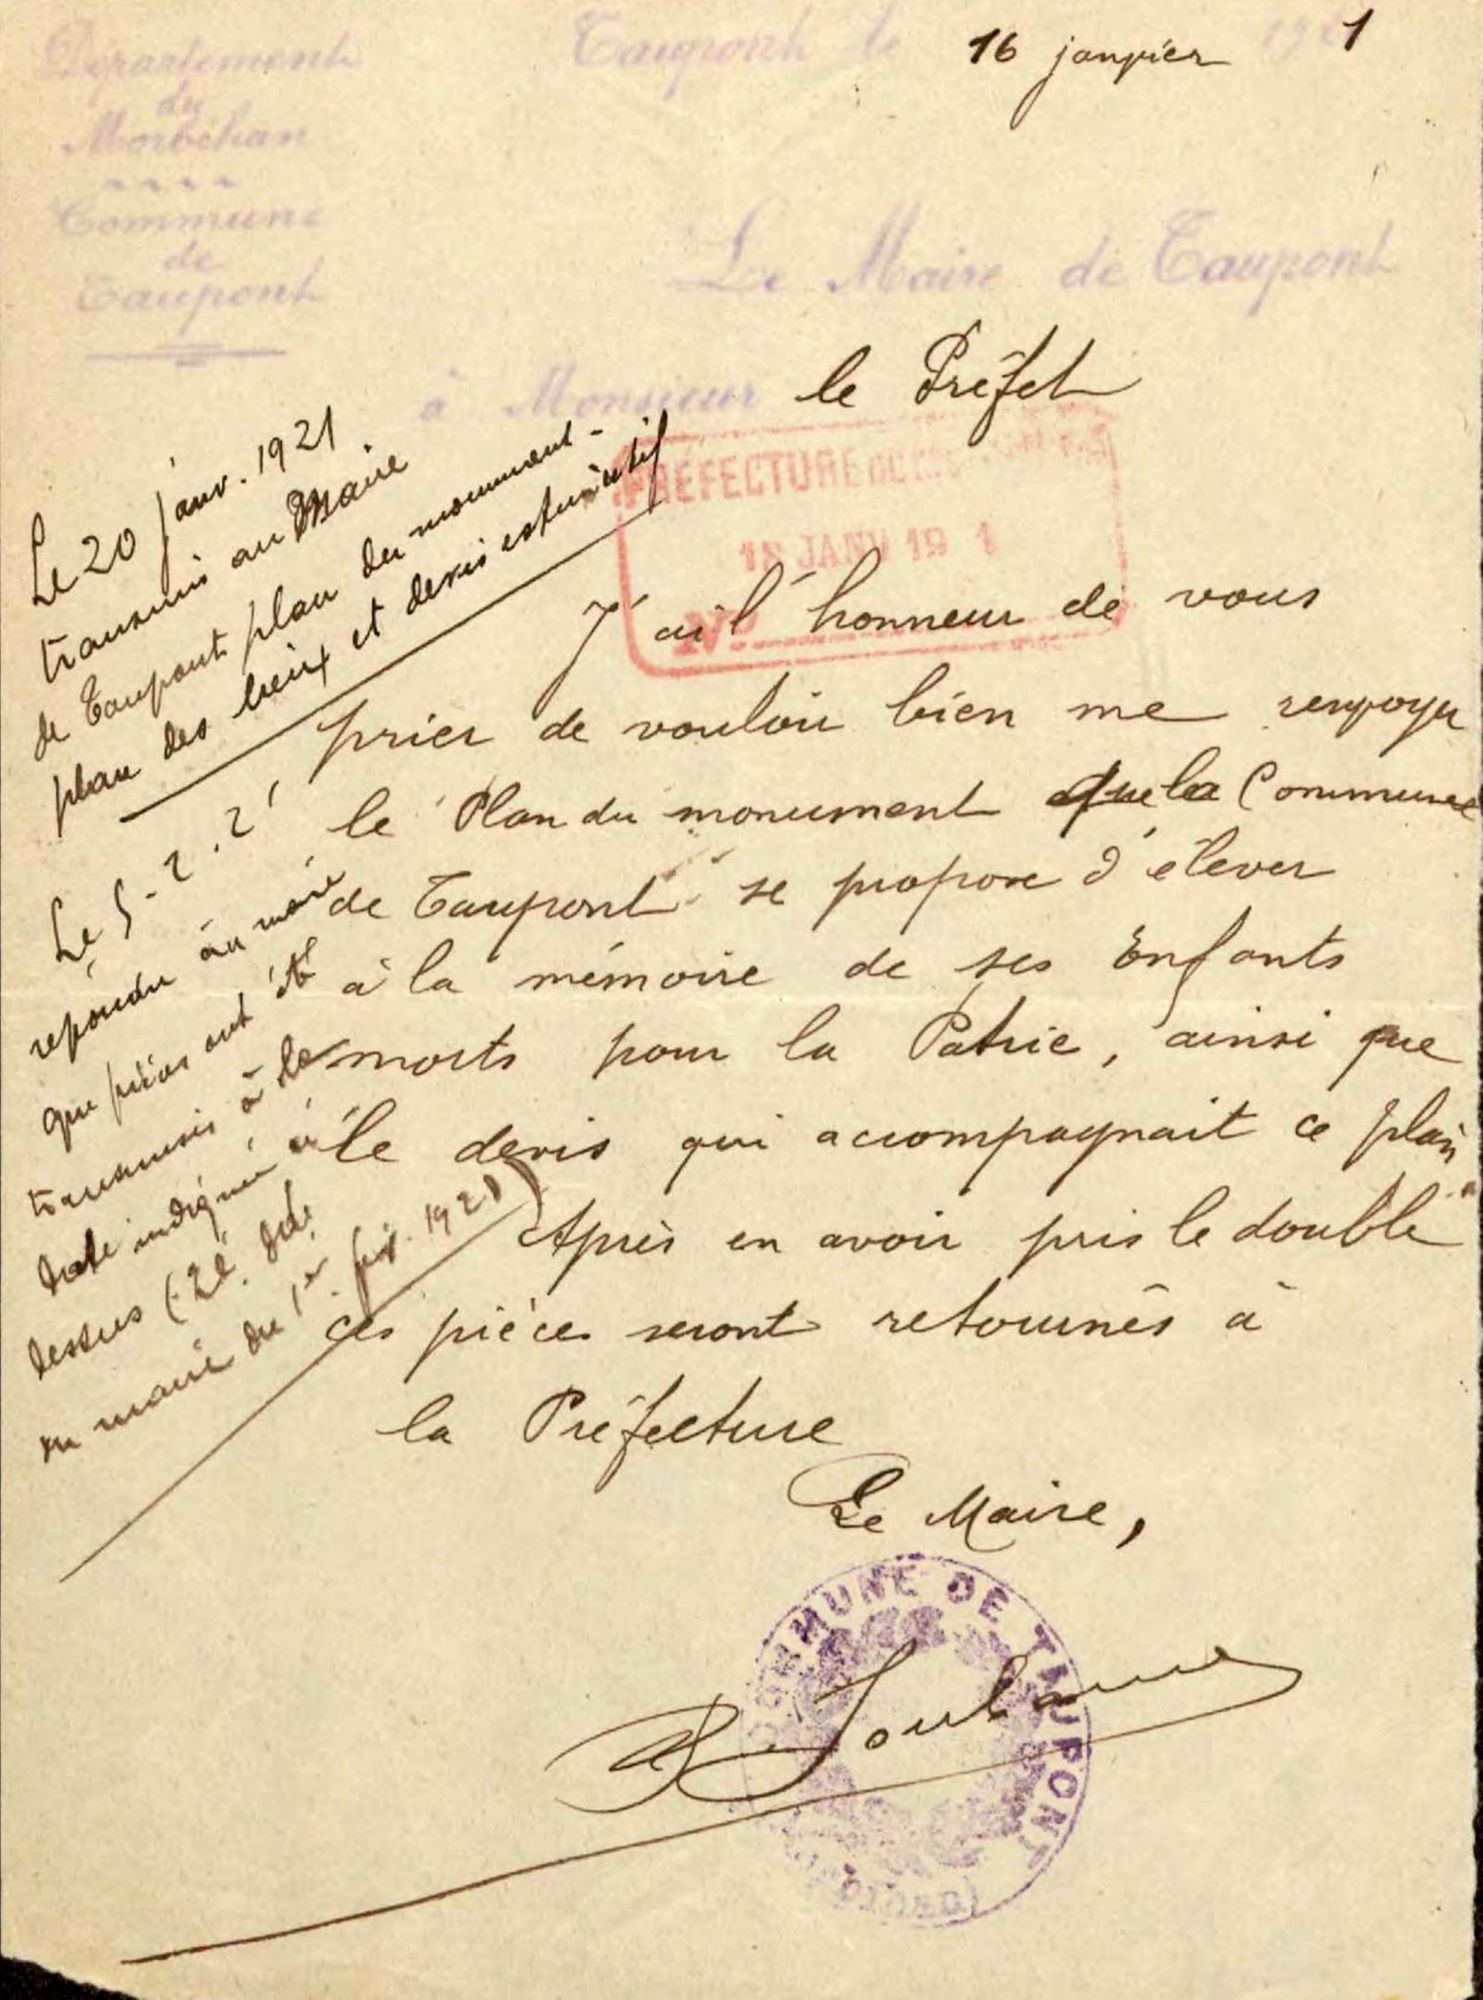 Département
du
Morbihan
Commune
de
Taupont
Taupont le 16 janvier 1921
Le Maire de Taupont
à Monsieur le Préfet
PRÉFECTURE DU
18 JANV 19 1
No
J'ai l'honneur de vous
prier de vouloir bien me renvoyer
le Plan du monument que la Commune
de Taupont se propose d'élever
à la mémoire de ses Enfants
morts pour la Patrie, ainsi que
le devis qui accompagnait ce plan.
Après en avoir pris le double
ces pièces seront retournés à
la Préfecture
Le Maire,
COMMUNE DE TAUPONT
Le 20 janv. 1921
transmis au Maire
de Taupont plan du monument -
plan des lieux et devis estimatif
Le 5-2.2
répondu au maire
que pièces ont été
transmis à la
date indiquée ci
dessus
du maire du 1er fév. 1921)